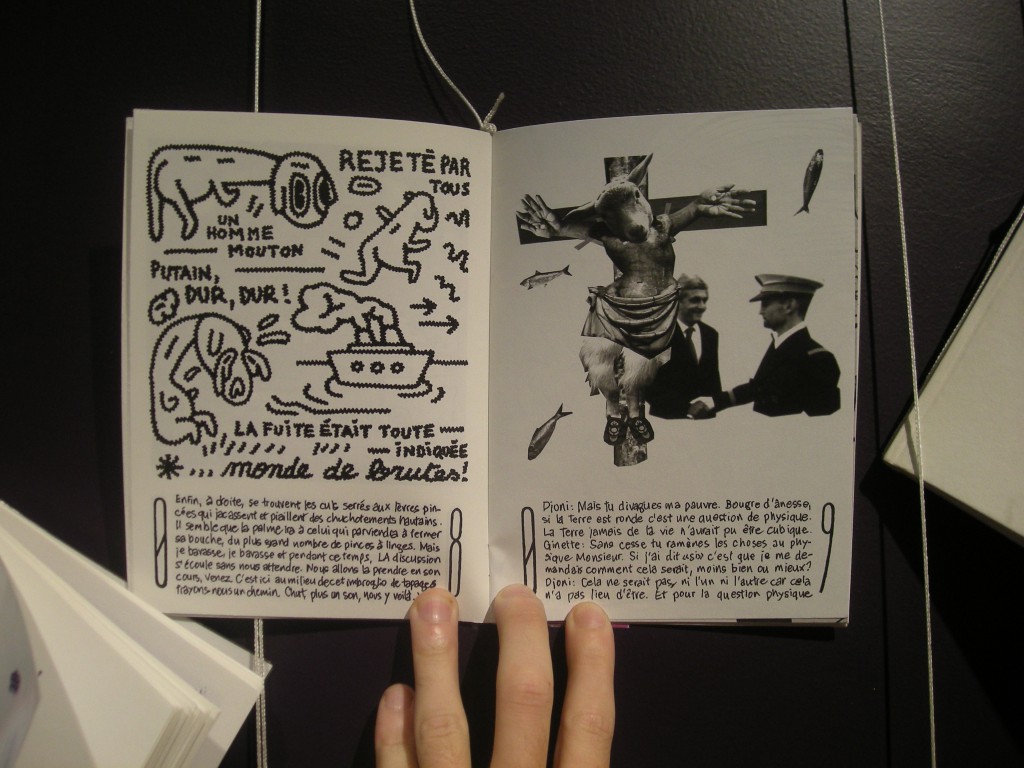 REJETÉ PAR
TOUS
UN
HOMME
MOUTON
PUTAIN,
DUR, DUR !
LA FUITE ÉTAIT TOUTE
INDIQUÉE
* ... monde de brutes!
Enfin, à droite, se trouvent les culs serrés aux lèvres pin-
cées qui jacassent et piaillent des chuchotements hautains.
Il semble que la palme ira à celui qui parviendra à fermer
sa bouche, du plus grand nombre de pinces à linges. Mais
je bavasse, je bavasse et pendant ce temps, LA discussion
s'écoule sans nous attendre. Nous allons la prendre en son
cours, venez. C'est ici au milieu de cet imbroglio de tapages
frayons-nous un chemin. Chut, plus un son, nous y voilà...
08
Djoni: Mais tu divagues ma pauvre. Bougre d'ânesse,
si la Terre est ronde c'est une question de physique.
La Terre jamais de la vie n'aurait pu être cubique.
Ginette: Sans cesse tu ramènes les choses au phy-
sique Monsieur. Si j'ai dit ça c'est que je me de-
mandais comment cela serait, moins bien ou mieux?
Djoni: Cela ne serait pas, ni l'un ni l'autre car cela
n'a pas lieu d'être. Et pour la question physique
09